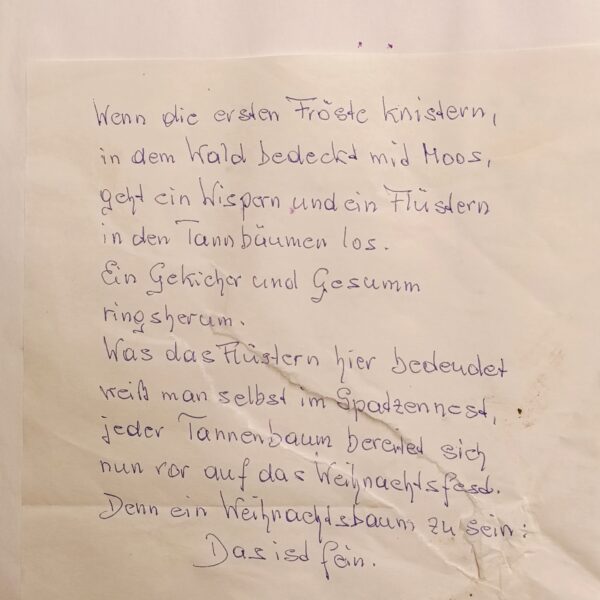 Wenn die ersten Fröste knistern,
in dem Wald bedeckt mid Moos,
geht ein Wispern und ein Flüstern
in den Tannbäumen los.
Ein Gekicher und Gesumm
ringsherum.
Was das Flüstern hier bedeudet
weiß man selbst im Spatzennest,
jeder Tannenbaum bereited sich
nun vor auf das Weihnachtsfest.
Denn ein Weihnachtsbaum zu sein:
Das ist fein.